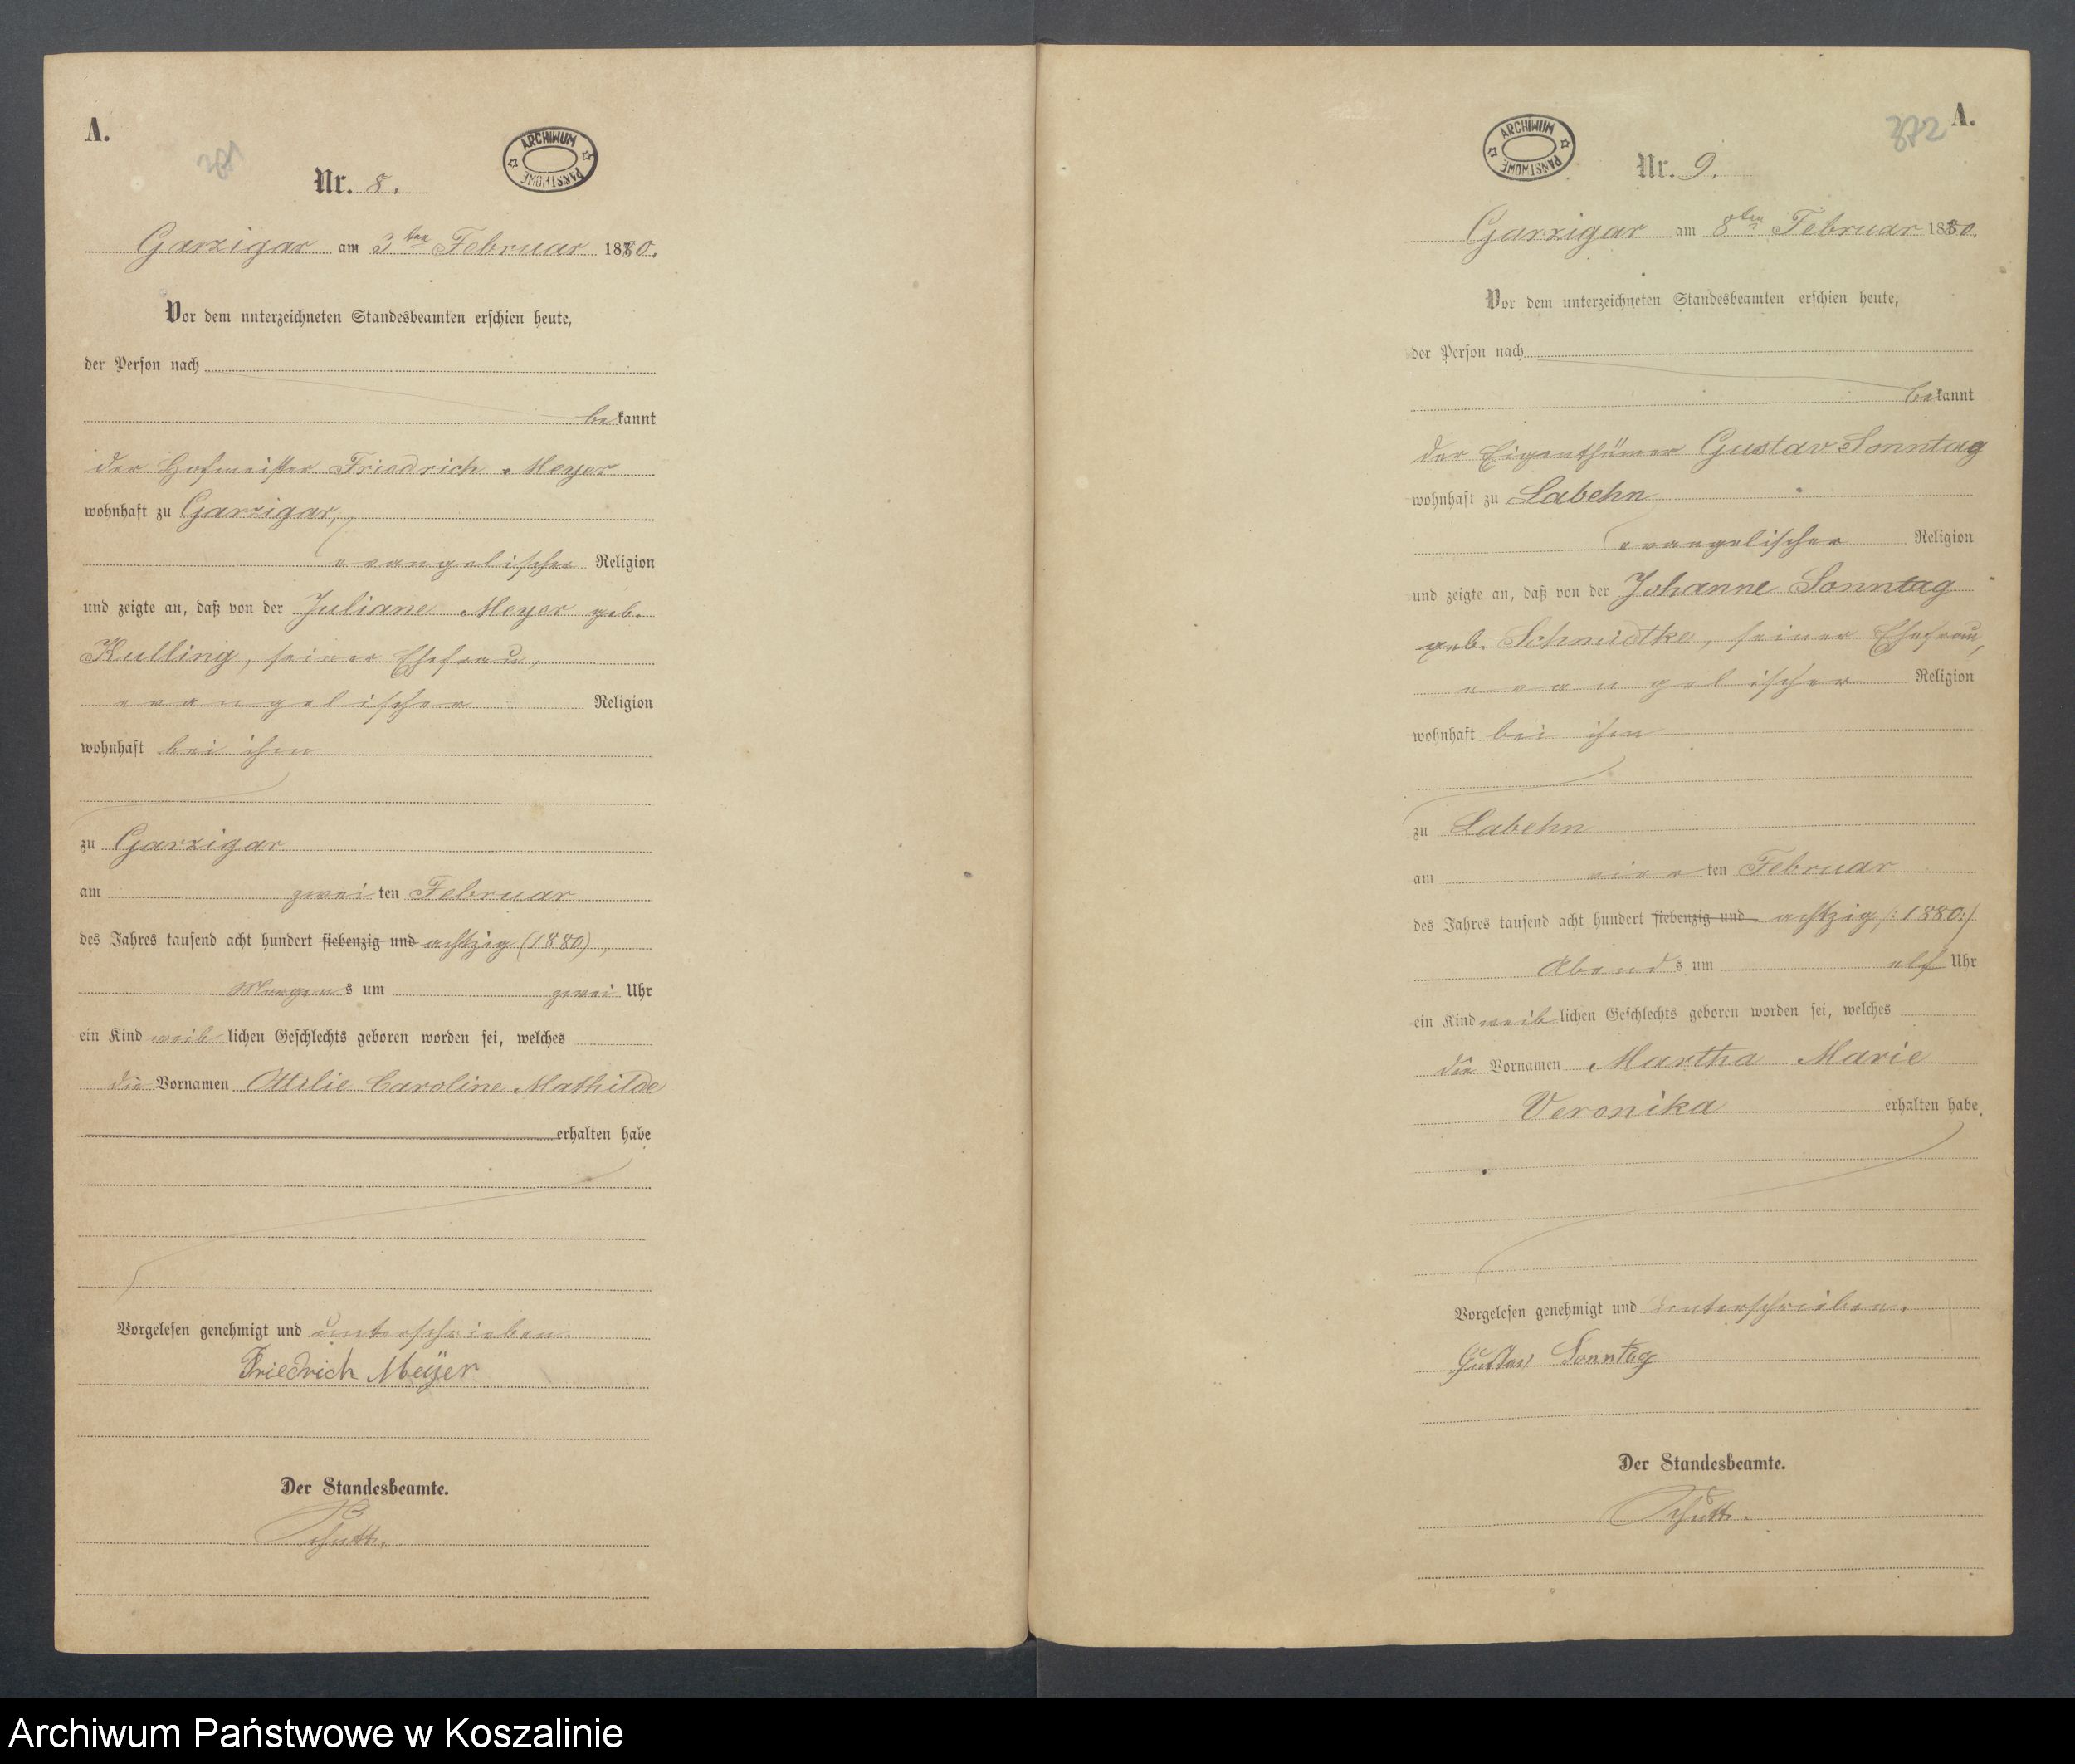 A.
371
ARCHIWUM PAŃSTWOWE
Nr. 8.
Garzigar am 3ten Februar 1880.
Vor dem unterzeichneten Standesbeamten erschien heute,
der Person nach
bekannt
der Hofmeister Friedrich Meyer
wohnhaft zu Garzigar,
evangelischer Religion
und zeigte an, daß von der Juliane Meyer geb.
Kulling, seiner Ehefrau,
evangelischer Religion
wohnhaft bei ihm
zu Garzigar
am zweiten Februar
des Jahres tausend acht hundert siebenzig und achtzig (1880),
Morgens um zwei Uhr
ein Kind weiblichen Geschlechts geboren worden sei, welches
die Vornamen Ottilie Caroline Mathilde
erhalten habe
Vorgelesen genehmigt und unterschrieben.
Friedrich Meÿer
Der Standesbeamte.
A.
372
ARCHIWUM PAŃSTWOWE
Nr. 9.
Garzigar am 8ten Februar 1880.
Vor dem unterzeichneten Standesbeamten erschien heute,
der Person nach
bekannt
der Eigenthümer Gustav Sonntag
wohnhaft zu Labehn
evangelischer Religion
und zeigte an, daß von der Johanne Sonntag
geb. Schmidtke, seiner Ehefrau,
evangelischer Religion
wohnhaft bei ihm
zu Labehn
am vierten Februar
des Jahres tausend acht hundert siebenzig und achtzig /:1880:/
Abends um elf Uhr
ein Kind weiblichen Geschlechts geboren worden sei, welches
die Vornamen Martha Marie
Veronika erhalten habe.
Vorgelesen genehmigt und unterschrieben.
Gustav Sonntag
Der Standesbeamte.
Archiwum Państwowe w Koszalinie